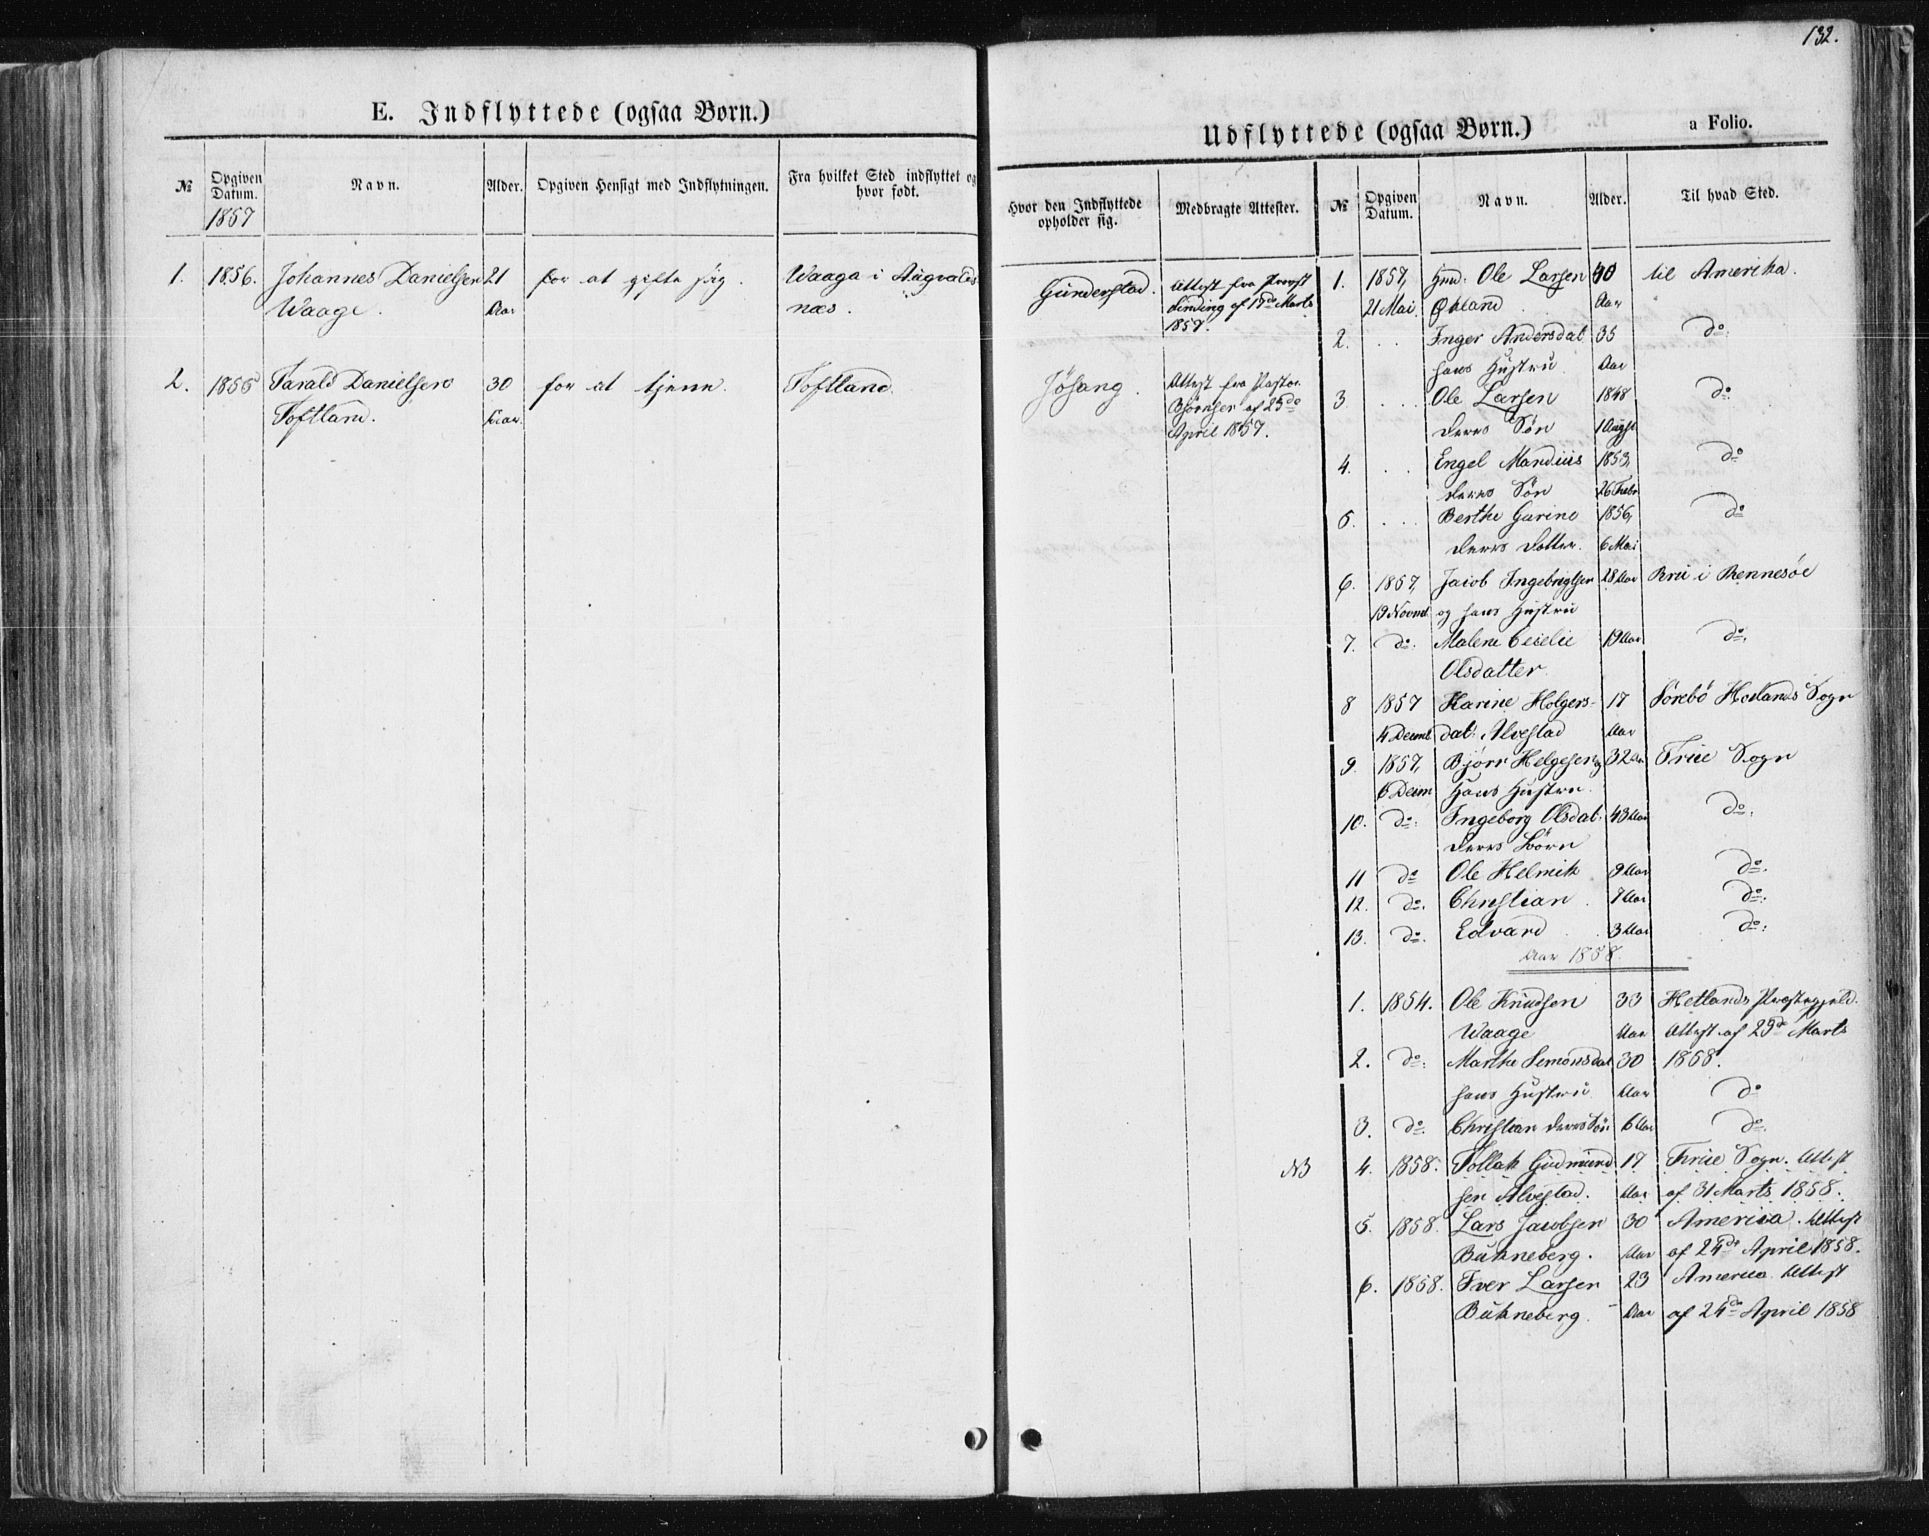 132.
E. Indflyttede (ogsaa Børn.)
Udflyttede (ogsaa Børn.) a Folio.
№ Opgiven Datum. Navn. Alder. Opgiven Hensigt med Indflytningen. Fra hvilket Sted indflyttet og hvor født.
1857
Hvor den Indflyttede opholder sig. Medbragte Attester. № Opgiven Datum. Navn. Alder. Til hvad Sted.
1. 1856. Johannes Danielsen 21 for at gifte sig. Waaga i Augvalds
Waage. Aar næs.
2. 1856 Tarald Danielsen 30 for at tjene. Toftland.
Toftland. Aar.
Gunderstad. Attest fra Provst
Sinding af 17de Marts
1857.
Jøsang. Attest fra Pastor
af 25de
April 1857.
1. 1857, Ole Larsen 40 til Amerika.
21 Mai Økland Aar
2. . . Inger Andersdat: 35 do:
hans Hustru Aar
3 . . . Ole Larsen 1848 do:
deres Søn 1 August
4. . . . Engel Mandius 1853, do
deres Søn 26 Febr
5. . . . Berthe Gurine 1856, do
deres Datter. 6 Mai
6. 1857, Jacob Ingebrigtsen 28 Aar Bru i Rennesøe
19 Novmb og hans Hustru
7. do: Malene Cecelie 19 Aar do:
Olsdatter
8 1857 Karine Holgers- 17 Sørebø Hetlands Sogn
4 Decmb dat: Alvestad Aar
9. 1857, Bjørn Helgesen og 32 Aar Frue Sogn
6 Decm Hans Hustru.
10. do: Ingeborg Olsdat: 43 Aar do:
deres Børn
11 do Ole Helmik 9 Aar do:
12. do: Christian 7 Aar do:
13. do: Edvard 3 Aar do:
Aar 1858
1. 1854. Ole Knudsen 33 Hetlands Præstegjeld.
Waage Aar Attest af 29de Marts
2. do: Marthe Semonsdat 30 1858.
hans Hustru Aar do
3. do. Christian deres Søn 6 Aar do.
NB 4. 1858. Tollak Gudmund 17 Frue Sogn. Attest
sen Alvestad. Aar af 31 Marts 1858.
5. 1858. Lars Jacobsen 30 America. Attest
Bukneberg. Aar af 24de April 1858.
6. 1858. Iver Larsen 23 America Attest
Bukneberg. Aar af 24de April 1858